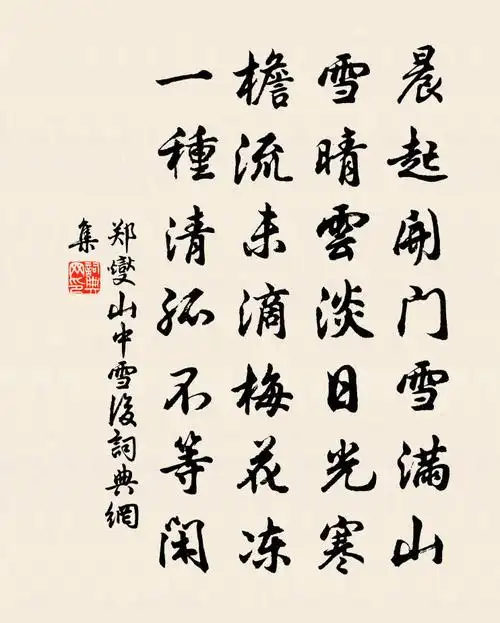 晨起開门雪滿山
雪晴雲淡日光寒
檐流未滴梅花冻
一種清孤不等闲
郑燮山中雪後詞典網
集
詞典网